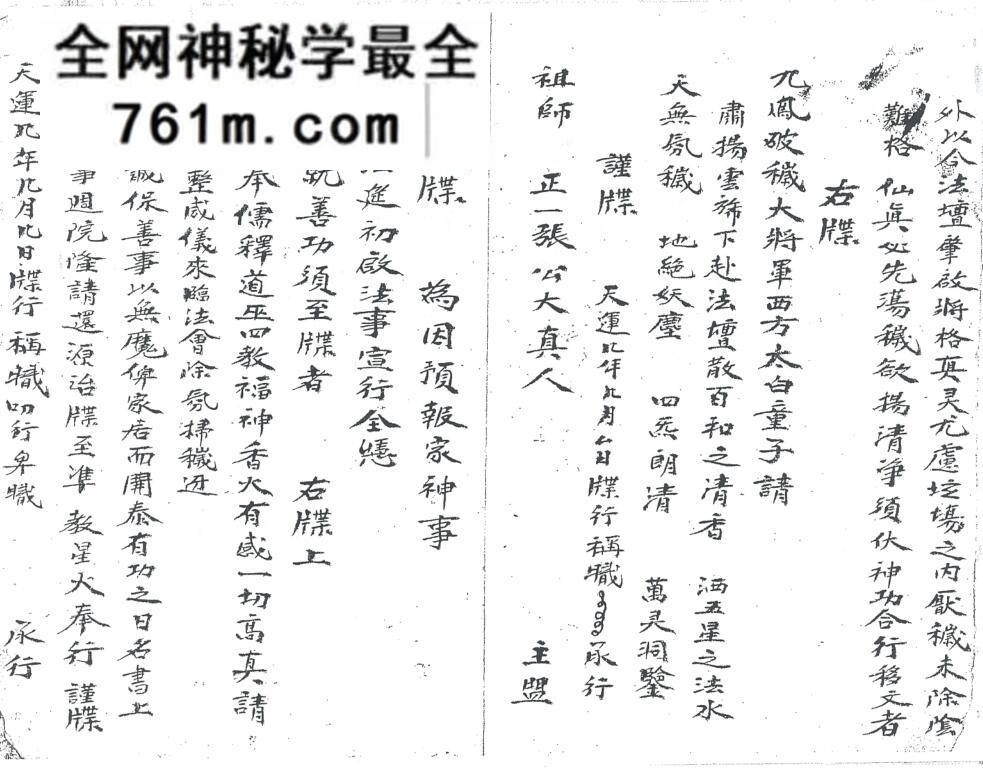 全网神秘学最全
761m.com
外以今法壇肇啟將格真灵尤慮坛場之内厭穢未除陰
難格 仙真必先蕩穢欲揚清淨須伏神功合行移文者
右牒
九鳳破穢大將軍西方太白童子請
肅揚雲斾下赴法壇散百和之清香 洒五星之法水
天無氛穢 地絶妖塵 四炁朗清 萬灵洞鑒
謹牒 天運 年 月 日牒行稱職 承行
祖師 正一張公大真人 主盟
牒 為因預報家神事
筵初啟法事宣行全憑
善功須至牒者 右牒上
奉儒釋道巫四教福神香火有感一切高真請
整威儀來臨法會除氛掃穢迸
誠保善事以無魔俾家居而開泰有功之日名書上
事週院隆請還源治牒至準 教星火奉行 謹牒
天運 年 月 日牒行稱職叩行卑職 承行